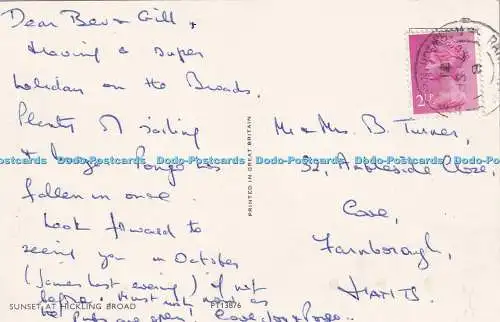 Dear Bev & Gill,
Having a super
holiday on the Broads.
Plenty of sailing
& booze. Pongo has
fallen in once.
Look forward to
seeing you in October
(James last evening) if not
before. Must rush now as
the Pubs are open! Love
2½P
Mr & Mrs. B. Turner,
32, Ambleside Close,
Cove,
Farnborough,
HANTS
PRINTED IN GREAT BRITAIN
Dodo-Postcards Dodo-Postcards Dodo-Postcards Dodo-Postcards Dodo-Postcards
SUNSET AT HICKLING BROAD
PT13876